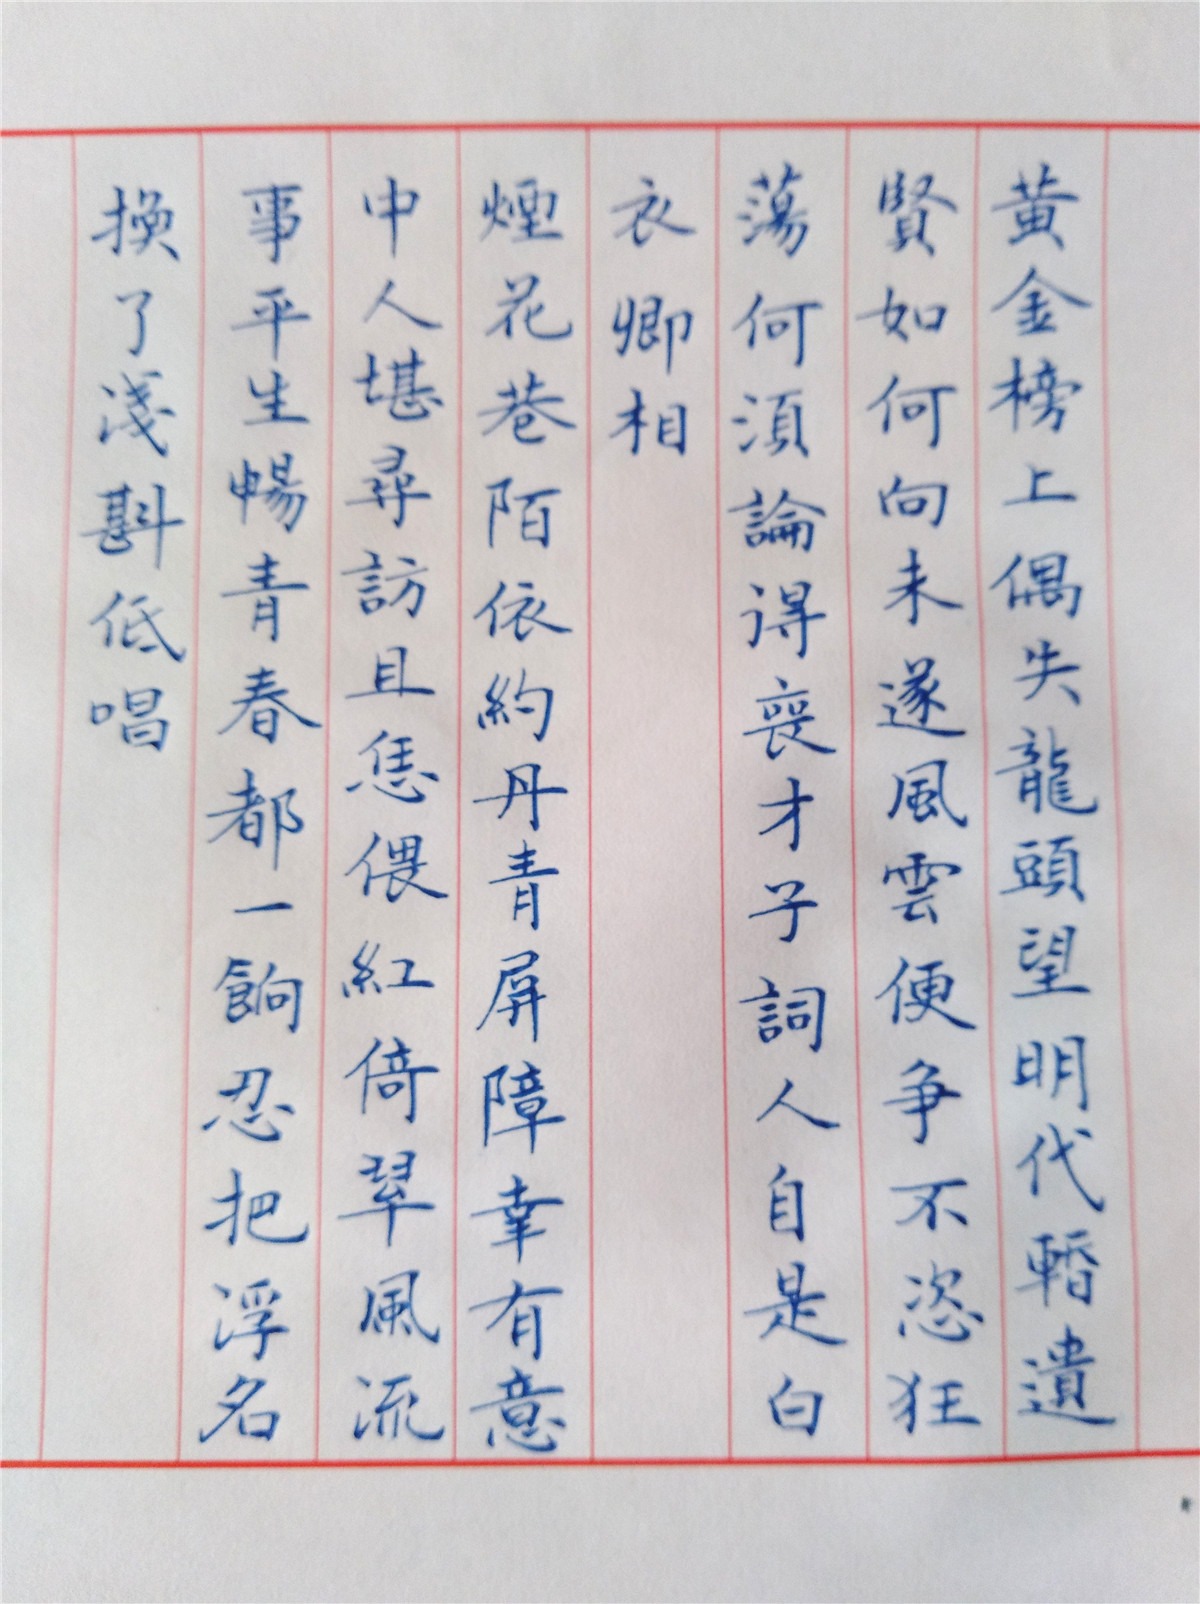 黄金榜上偶失龍頭望明代暫遺
賢如何向未遂風雲便争不恣狂
蕩何須論得喪才子詞人自是白
衣卿相
煙花巷陌依約丹青屏障幸有意
中人堪尋訪且恁偎紅倚翠風流
事平生暢青春都一餉忍把浮名
換了淺斟低唱